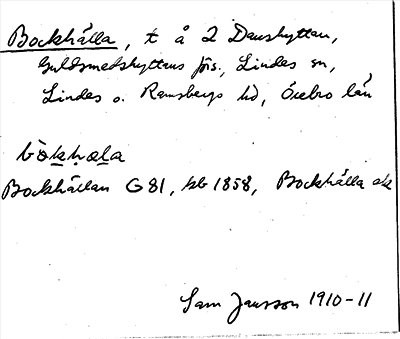 Bockhälla, t å 2 Danshyttan,
Guldsmedshyttans jfs., Lindes sn,
Lindes o. Ramsbergs hd, Örebro län
bòkhæla
Bockhällan G 81, kb 1858, Bockhälla ek
Sam Jansson 1910-11